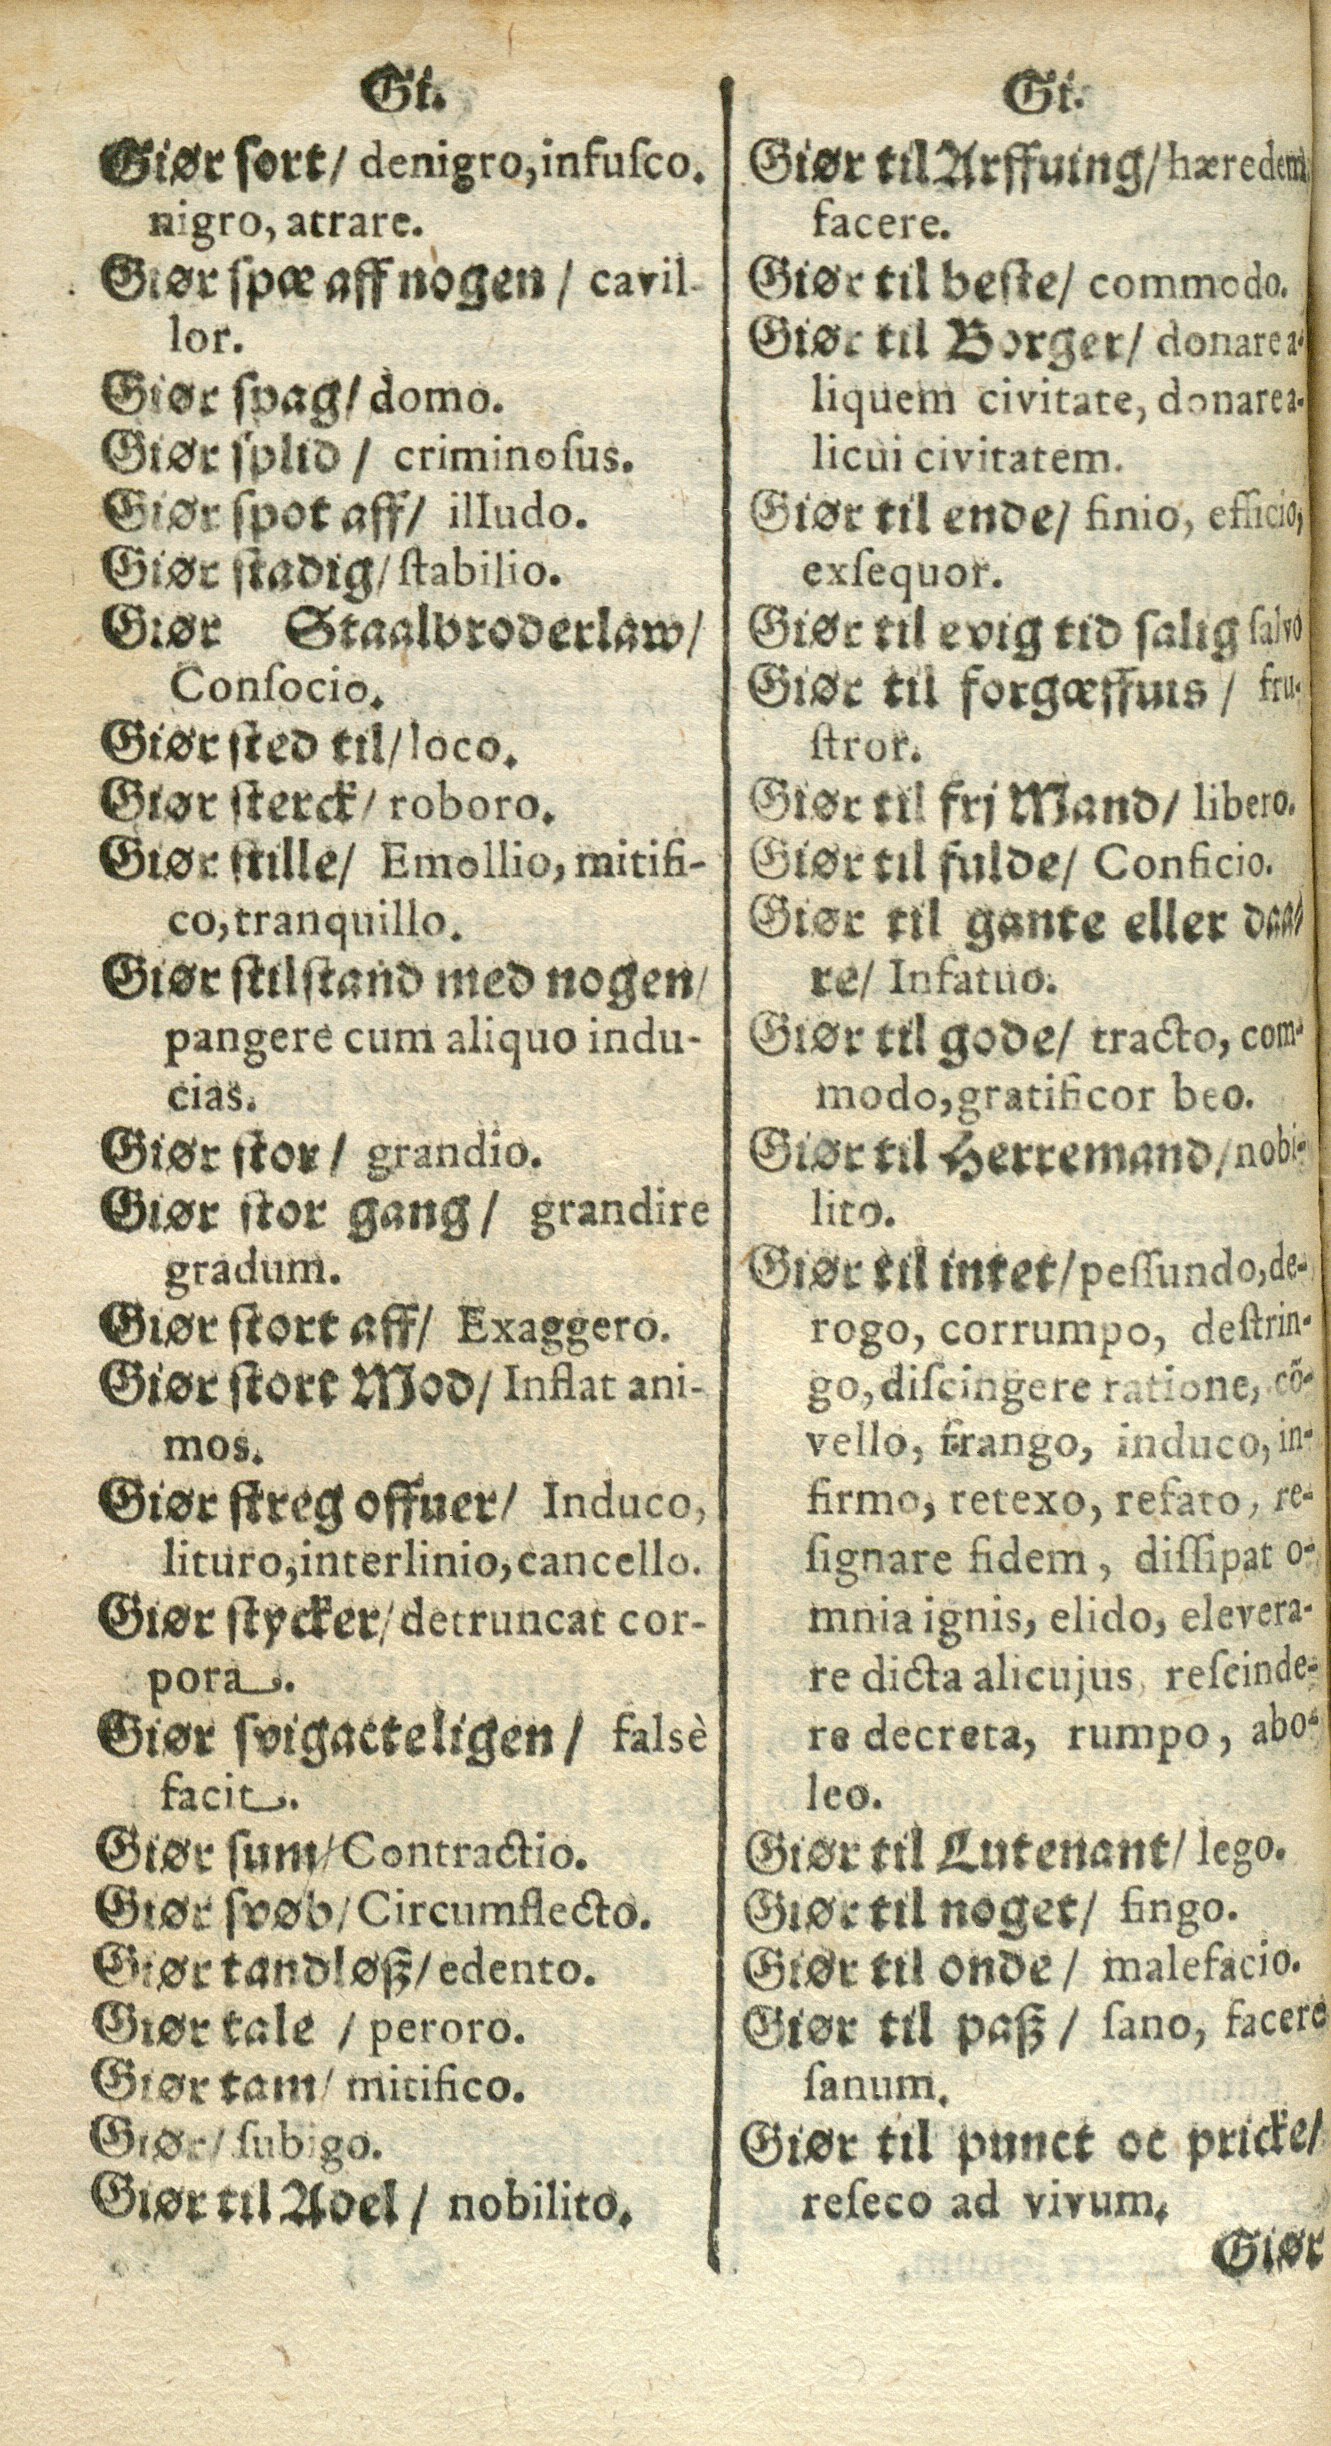 Gi.
Giør ſort/ denigro, infuſco.
nigro, atrare.
Giør spæ aff nogen/ cavil-
lor.
Giør ſpag/ domo.
Giør ſplid/ criminoſus.
Giør ſpot aff/ illudo.
Giør ſtadig/ ſtabilio.
Giør Staalbroderlaw/
Conſocio.
Giør ſted til/ loco.
Giør ſterck/ roboro.
Giør ſtille/ Emollio, mitifi-
co, tranquillo.
Giør ſtilſtand med nogen/
pangere cum aliquo indu-
cias.
Giør ſtor/ grandio.
Giør ſtor gang/ grandire
gradum.
Giør ſtort aff/ Exaggero.
Giør ſtort Mod/ Inflat ani-
mos.
Giør ſtreg offuer/ Induco,
lituro, interlinio, cancello.
Giør ſtycker/ detruncat cor-
pora.
Giør ſvigacteligen/ falsè
facit.
Giør ſum/ Contractio.
Giør ſvøb/ Circumflecto.
Giør tandløß/ edento.
Giør tale / peroro.
Giør tam/ mitifico.
Giør/ ſubigo.
Giør til Adel/ nobilito.
Gi.
Giør til Arffuing/ hæredem
facere.
Giør til beſte/ commodo.
Giør til Borger/ donare a-
liquem civitate, donare a-
licui civitatem.
Giør til ende/ finio, efficio,
exſequor.
Giør til evig tid ſalig ſalvo
Giør til forgæffuis/ fru-
ſtror.
Giør til frj Mand/ libero.
Giør til fulde/ Conficio.
Giør til gante eller daa/
re/ Infatuo.
Giør til gode/ tracto, com-
modo, gratificor beo.
Giør til Herremand/ nobi-
lito.
Giør til intet/ peſſundo, de-
rogo, corrumpo, deſtrin-
go, diſcingere ratione, cō-
vello, frango, induco, in-
firmo, retexo, refato, re-
ſignare fidem, diſſipat o-
mnia ignis, elido, elevera-
re dicta alicujus, reſcinde-
re decreta, rumpo, abo-
leo.
Giør til Lutenant/ lego.
Giør til noget/ fingo.
Giør til onde/ malefacio.
Giør til paß/ ſano, facere
ſanum.
Giør til punct oc pricke/
reſeco ad vivum.
Giør